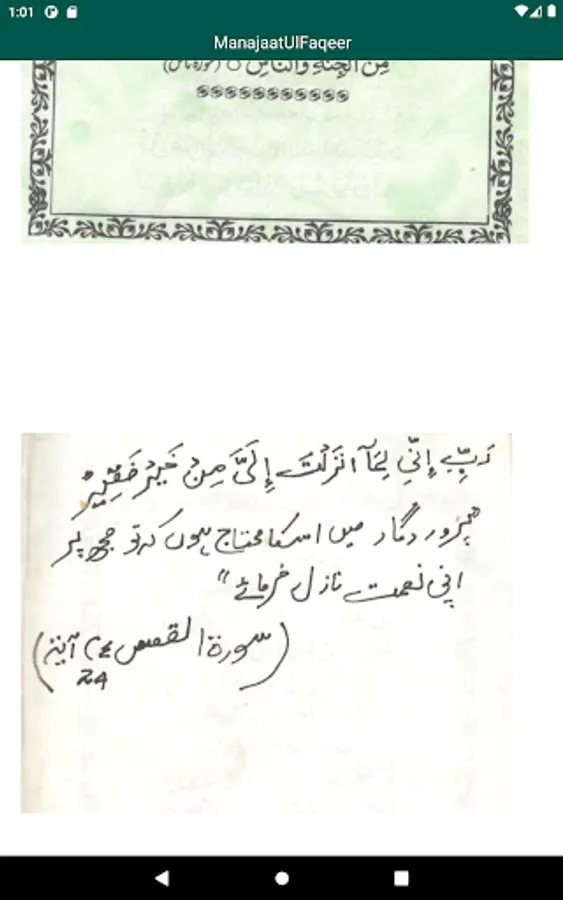 1:01
ManajaatUlFaqeer
مِنَ الْجِنَّةِ وَالنَّاسِ ○ (سورہ ناس)
رَبِّ إِنِّي لِمَآ اَنْزَلْتَ إِلَيَّ مِنْ خَيْرٍ فَقِيْرٌ
"پروردگار میں اسکا محتاج ہوں کہ تو مجھ پر
اپنی نعمت نازل فرمائے"
(سورۃ القصص آیۃ
24